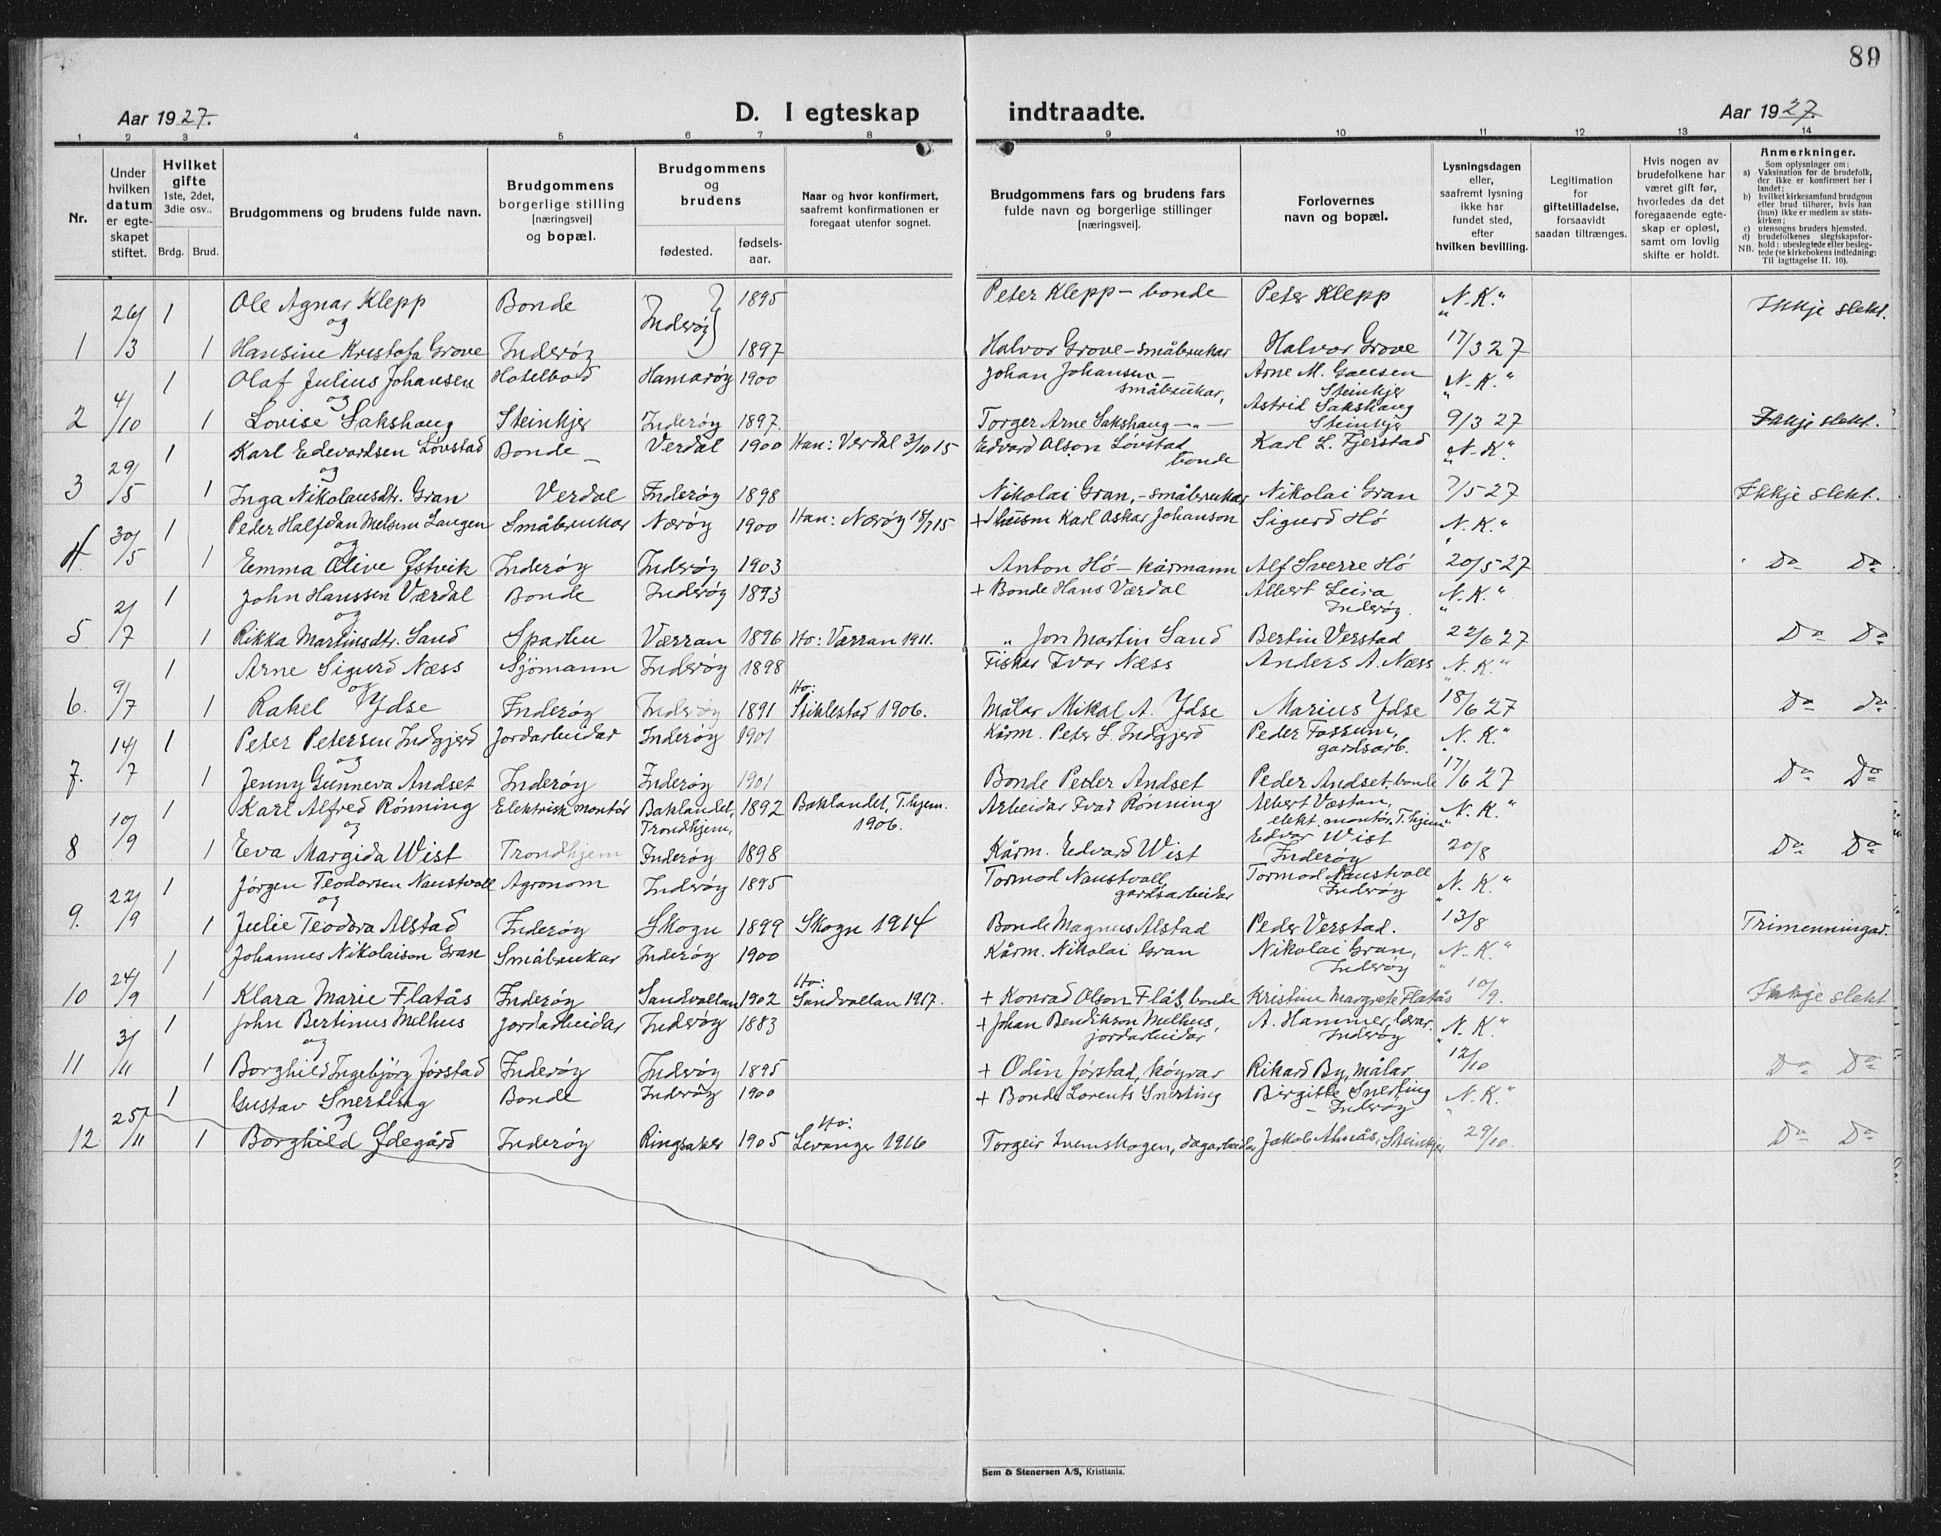 89
Aar 1927. D. I egteskap indtraadte. Aar 1927.
1 2 3 4 5 6 7 8 9 10 11 12 13 14
Nr.
Under hvilken datum er egteskapet stiftet.
Hvilket gifte 1ste, 2det, 3die osv.. Brdg. Brud.
Brudgommens og brudens fulde navn.
Brudgommens borgerlige stilling [næringsvei] og bopæl.
Brudgommens og brudens fødested. fødselsaar.
Naar og hvor konfirmert, saafremt konfirmationen er foregaat utenfor sognet.
Brudgommens fars og brudens fars fulde navn og borgerlige stillinger [næringsvei].
Forlovernes navn og bopæl.
Lysningsdagen eller, saafremt lysning ikke har fundet sted, efter hvilken bevilling.
Legitimation for giftetilladelse, forsaavidt saadan tiltrænges.
Hvis nogen av brudefolkene har været gift før, hvorledes da det foregaaende egteskap er opløst, samt om lovlig skifte er holdt.
Anmerkninger.
Som oplysninger om:
a) Vaksination for de brudefolk, der ikke er konfirmert her i landet;
b) hvilket kirkesamfund brudgom eller brud tilhører, hvis han (hun) ikke er medlem av statskirken;
c) utensogns bruders hjemsted.
d) brudefolkenes slegtskapsforhold: ubeslegtede eller beslegtede (se kirkebokens indledning:
NB. Til iagttagelse II. 10).
26/ 1 Ole Agnar Klepp Bonde 1895 Peter Klepp – bonde Peter Klepp "N. K." Ikkje slekt.
og Inderøy
1 /3 1 Hansine Kristofa Grove Inderøy 1897 Halvor Grove – småbrukar Halvor Grove 17/3 27
1 Olaf Julius Johansen Hotelbod Hamarøy 1900 Johan Johansen – småbrukar, Arne M. Steinkjer "N. K."
og
2 4/10 1 Lovise Sakshaug Steinkjer Inderøy 1897. Torger Arne Sakshaug – " – Astrid Sakshaug Steinkjer 9/3 27 Ikkje slekt.
1 Karl Edevardsen Løvstad Bonde – Verdal 1900 Han: Verdal 3/10 15 Edvard Olson Løvstad bonde Karl L. Fjerstad "N. K."
29/ og
3 /5 1 Inga Nikolausdtr. Gran Verdal Inderøy 1898 Nikolai Gran, – småbrukar Nikolai Gran 7/5 27 Ikkje slekt.
30/ 1 Peder Halfdan Langen Småbrukar Nærøy 1900 Han: Nærøy 15 + Karl Askar Johanson Sigurd Hó "N. K."
og
4. /5 1 Emma Olive Østvik Inderøy Inderøy 1903 Anton Hó – kårmann Alf Sverre Hó 20/5 27 Do Do
1 John Hanssen Værdal Bonde Inderøy 1893 + Bonde Hans Værdal Albert Leira Inderøy. "N. K."
2/ og
5 /7 1 Rikka Martinsdtr. Sand Sparbu Værran 1896 Ho: Værran 1911. " Jon Martin Sand Bertin Verstad 22/6 27 Do Do
1 Arne Sigurd Næss Sjömann Inderøy 1898 Fiskar Ivar Næss Anders A. Næss "N. K."
9/ og
6. /7 1 Rakel Ydse Inderøy Inderøy 1891 Ho: Stiklestad 1906. Målar Mikal A. Ydse Marius Ydse 18/6 27 Do Do
14/ 1 Peter Petersen Indgjerd Jordarbeidar Inderøy 1901 Kårm. Peter L. Indgjerd Peder Fossum, gardsarb. "N. K."
og
7. /7 1 Jenny Gunneva Andset Inderøy Inderøy 1901 Bonde Peder Andset Peder Andset – bonde 17/6 27 Do Do
1 Karl Alfred Rönning Elektrisk montör Baklandet, Trondhjem, 1892 Baklandet, T.hjem. 1906. Arbeidar Ivar Rönning Albert Væstan, elekt. montör. T.hjem "N. K."
10/ og
8 /9 1 Eva Margida Wist Trondhjem Inderøy 1898 Kårm. Edvard Wist Edvar Wist Inderøy 20/8 Do Do
1 Jörgen Teodorsen Naustvoll Agronom Inderøy 1895 Tormod Naustvoll gardsarbeidar Tormod Naustvoll Inderøy "N. K."
22/ og
9. /9 1 Julie Teodora Alstad Inderøy Skogn 1899 Skogn 1914 Bonde Magnus Alstad Peder Verstad. 13/8 Trimenningar.
1 Johannes Nikolaison Gran Småbrukar Inderøy 1900 Kårm. Nikolai Gran Nikolai Gran, Inderøy "N. K."
24/
10 /9 1 Klara Marie Flatås Inderøy Sandvollan 1902 Ho: Sandvollan 1917. + Konrad Olson Flåt, bonde Kristine Margrete Flatås 10/9. Ikkje slekt
1 John Bertinus Melhus Jordarbeidar Inderøy 1883 + Johan Bendikson Melhus, jordarbeidar A. Hammer, lærar. Inderøy "N. K."
3/ og
11 /11 1 Borghild Ingebjörg Jörstad Inderøy Inderøy 1895 + Odin Jörstad, Rikard By, målar 12/10 Do Do
1 Gustav Snerting Bonde Inderøy 1900 + Bonde Lorents Snerting Birgitte Snerting – Inderøy "N. K."
25/ og
12 /11 1 Borghild Ydegård Inderøy Ringsaker 1905 Ho: Levanger 1916 Torgeir dagarbeidar Jakob Almås, Steinkjer 29/10. Do Do
Sem & Stenersen A/S, Kristiania.